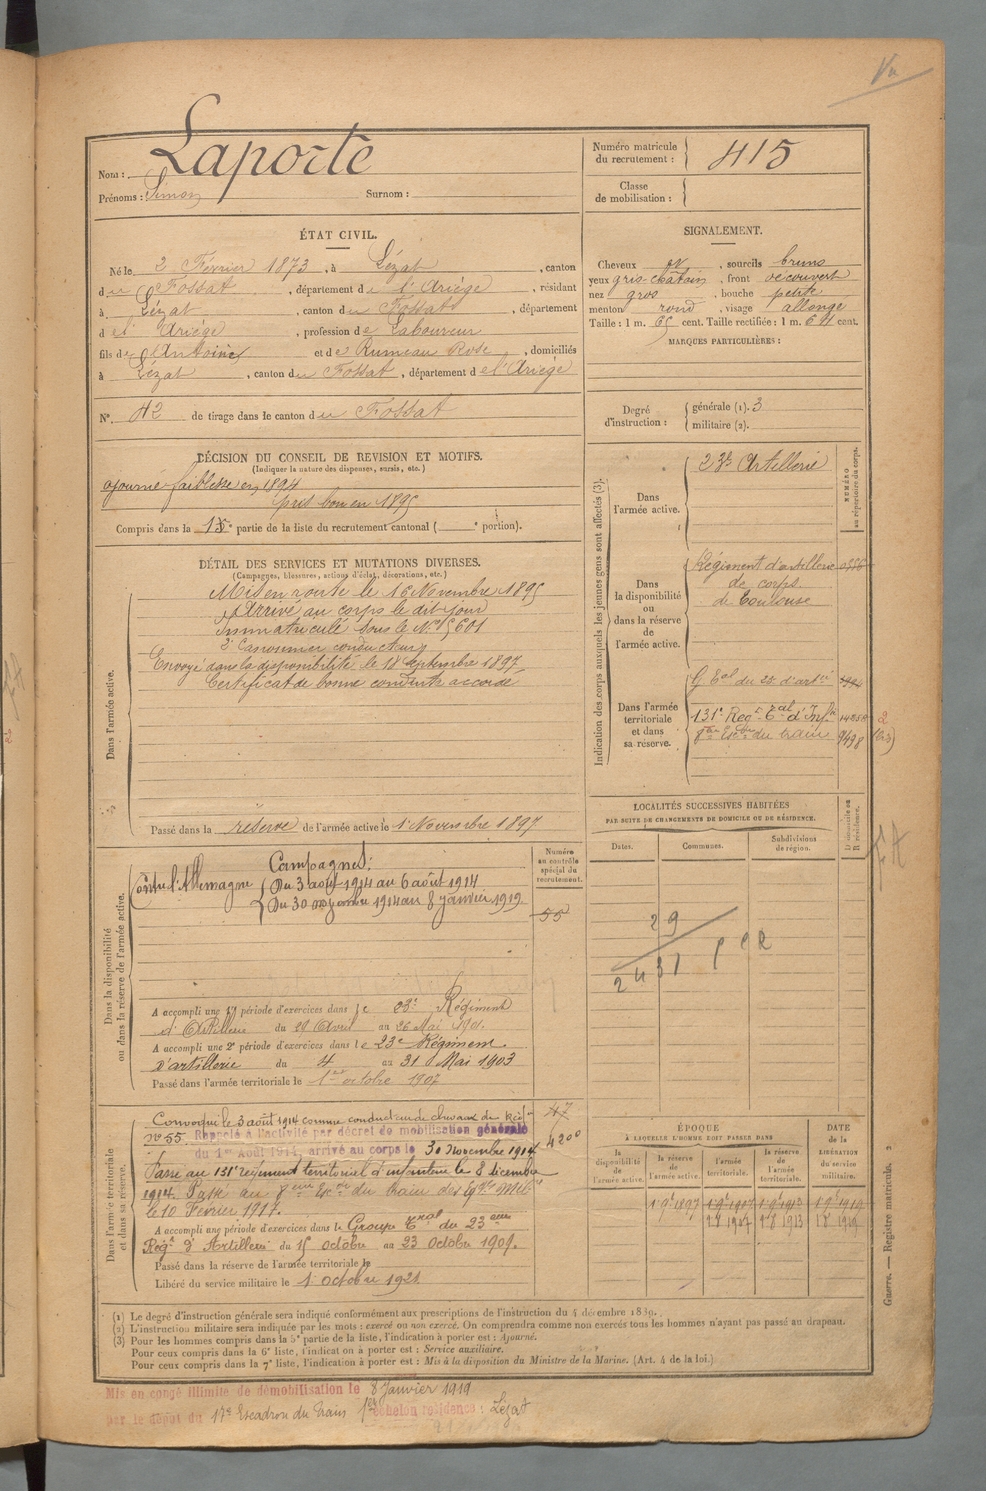 Vu
Nom : Laporte
Prénoms : Simon Surnom :
Numéro matricule du recrutement : 415
Classe de mobilisation :
ÉTAT CIVIL.
Né le 2 Février 1873, à Lézat, canton
du Fossat, département de l'Ariège, résidant
à Lézat, canton du Fossat, département
d el' Ariège, profession de Laboureur
fils de Antoine et de Rumeau Rose, domiciliés
à Lézat, canton du Fossat, département de l'Ariège
N° 42 de tirage dans le canton du Fossat
SIGNALEMENT.
Cheveux , sourcils bruns
yeux gris-chatain, front découvert
nez gros, bouche petite
menton rond, visage allongé
Taille : 1 m. 65 cent. Taille rectifiée : 1 m. 64 cent.
MARQUES PARTICULIÈRES :
Degré d'instruction : générale (1). 3
militaire (2).
DÉCISION DU CONSEIL DE REVISION ET MOTIFS.
(Indiquer la nature des dispenses, sursis, etc.)
ajourné faiblesse en 1894
pris bon en 1895
Compris dans la 1e partie de la liste du recrutement cantonal ( e portion).
DÉTAIL DES SERVICES ET MUTATIONS DIVERSES.
(Campagnes, blessures, actions d'éclat, décorations, etc.)
Dans l'armée active.
Mis en route le 16 Novembre 1895
Arrivé au corps le dit jour
Immatriculé sous le N° 5601
2e Canonnier conducteur
Envoyé dans la disponibilité le 18 Septembre 1897
Certificat de bonne conduite accordé
Passé dans la réserve de l'armée active le 1 Novembre 1897
Indication des corps auxquels les jeunes gens sont affectés (3).
NUMÉRO au répertoire du corps.
Dans l'armée active.
23e Artillerie
Dans la disponibilité ou dans la réserve de l'armée active.
Régiment d'artillerie
de corps
de Toulouse
Dans l'armée territoriale et dans sa réserve.
G. Eal du 23e d'artie
131e Regt Tal d'Infie
8me Escon du train 9498
2
(bis)
LOCALITÉS SUCCESSIVES HABITÉES
PAR SUITE DE CHANGEMENTS DE DOMICILE OU DE RÉSIDENCE.
Dates. Communes. Subdivisions de région. D. domicile ou R. résidence.
29
2431 PCR
Dans la disponibilité ou dans la réserve de l'armée active.
Numéro au contrôle spécial du recrutement.
Campagnes :
Contre l'Allemagne Du 3 août 1914 au 6 août 1914
Du 30 novembre 1914 au 8 janvier 1919
55
A accompli une 1re période d'exercices dans le 23e Régiment
d'Artillerie du 29 Avril au 26 Mai 1901
A accompli une 2e période d'exercices dans le 23e Régiment
d'artillerie du 4 au 31 Mai 1903
Passé dans l'armée territoriale le 1er octobre 1907
Dans l'armée territoriale et dans sa réserve.
Convoqué le 3 août 1914 comme conducteur de chevaux de Réqon
n° 55. Rappelé à l'activité par décret de mobilisation générale
du 1er Août 1914, arrivé au corps le 30 Novembre 1914.
Passé au 131e régiment territorial d'infanterie le 8 décembre
1914. Passé au 8eme Escon du train des Eqges Mlres
le 10 Février 1917.
47
4200
A accompli une période d'exercices dans le Groupe Tral du 23eme
Régt d'Artillerie du 15 octobre au 23 Octobre 1909.
Passé dans la réserve de l'armée territoriale le
Libéré du service militaire le 1 octobre 1921
ÉPOQUE
À LAQUELLE L'HOMME DOIT PASSER DANS
la disponibilité de l'armée active. la réserve de l'armée active. l'armée territoriale. la réserve de l'armée territoriale.
DATE de la LIBÉRATION du service militaire.
1 9e 1897 1 9e 1907 1 9e 1913 1 9e 1919
Guerre. — Registre matricule. 2
(1) Le degré d'instruction générale sera indiqué conformément aux prescriptions de l'instruction du 4 décembre 1889.
(2) L'instruction militaire sera indiquée par les mots : exercé ou non exercé. On comprendra comme non exercés tous les hommes n'ayant pas passé au drapeau.
(3) Pour les hommes compris dans la 5e partie de la liste, l'indication à porter est : Ajourné.
Pour ceux compris dans la 6e liste, l'indication à porter est : Service auxiliaire.
Pour ceux compris dans la 7e liste, l'indication à porter est : Mis à la disposition du Ministre de la Marine. (Art. 4 de la loi.)
Mis en congé illimité de démobilisation le 8 Janvier 1919
par le dépôt du 17e Escadron du Train 1er échelon résidence : Lézat